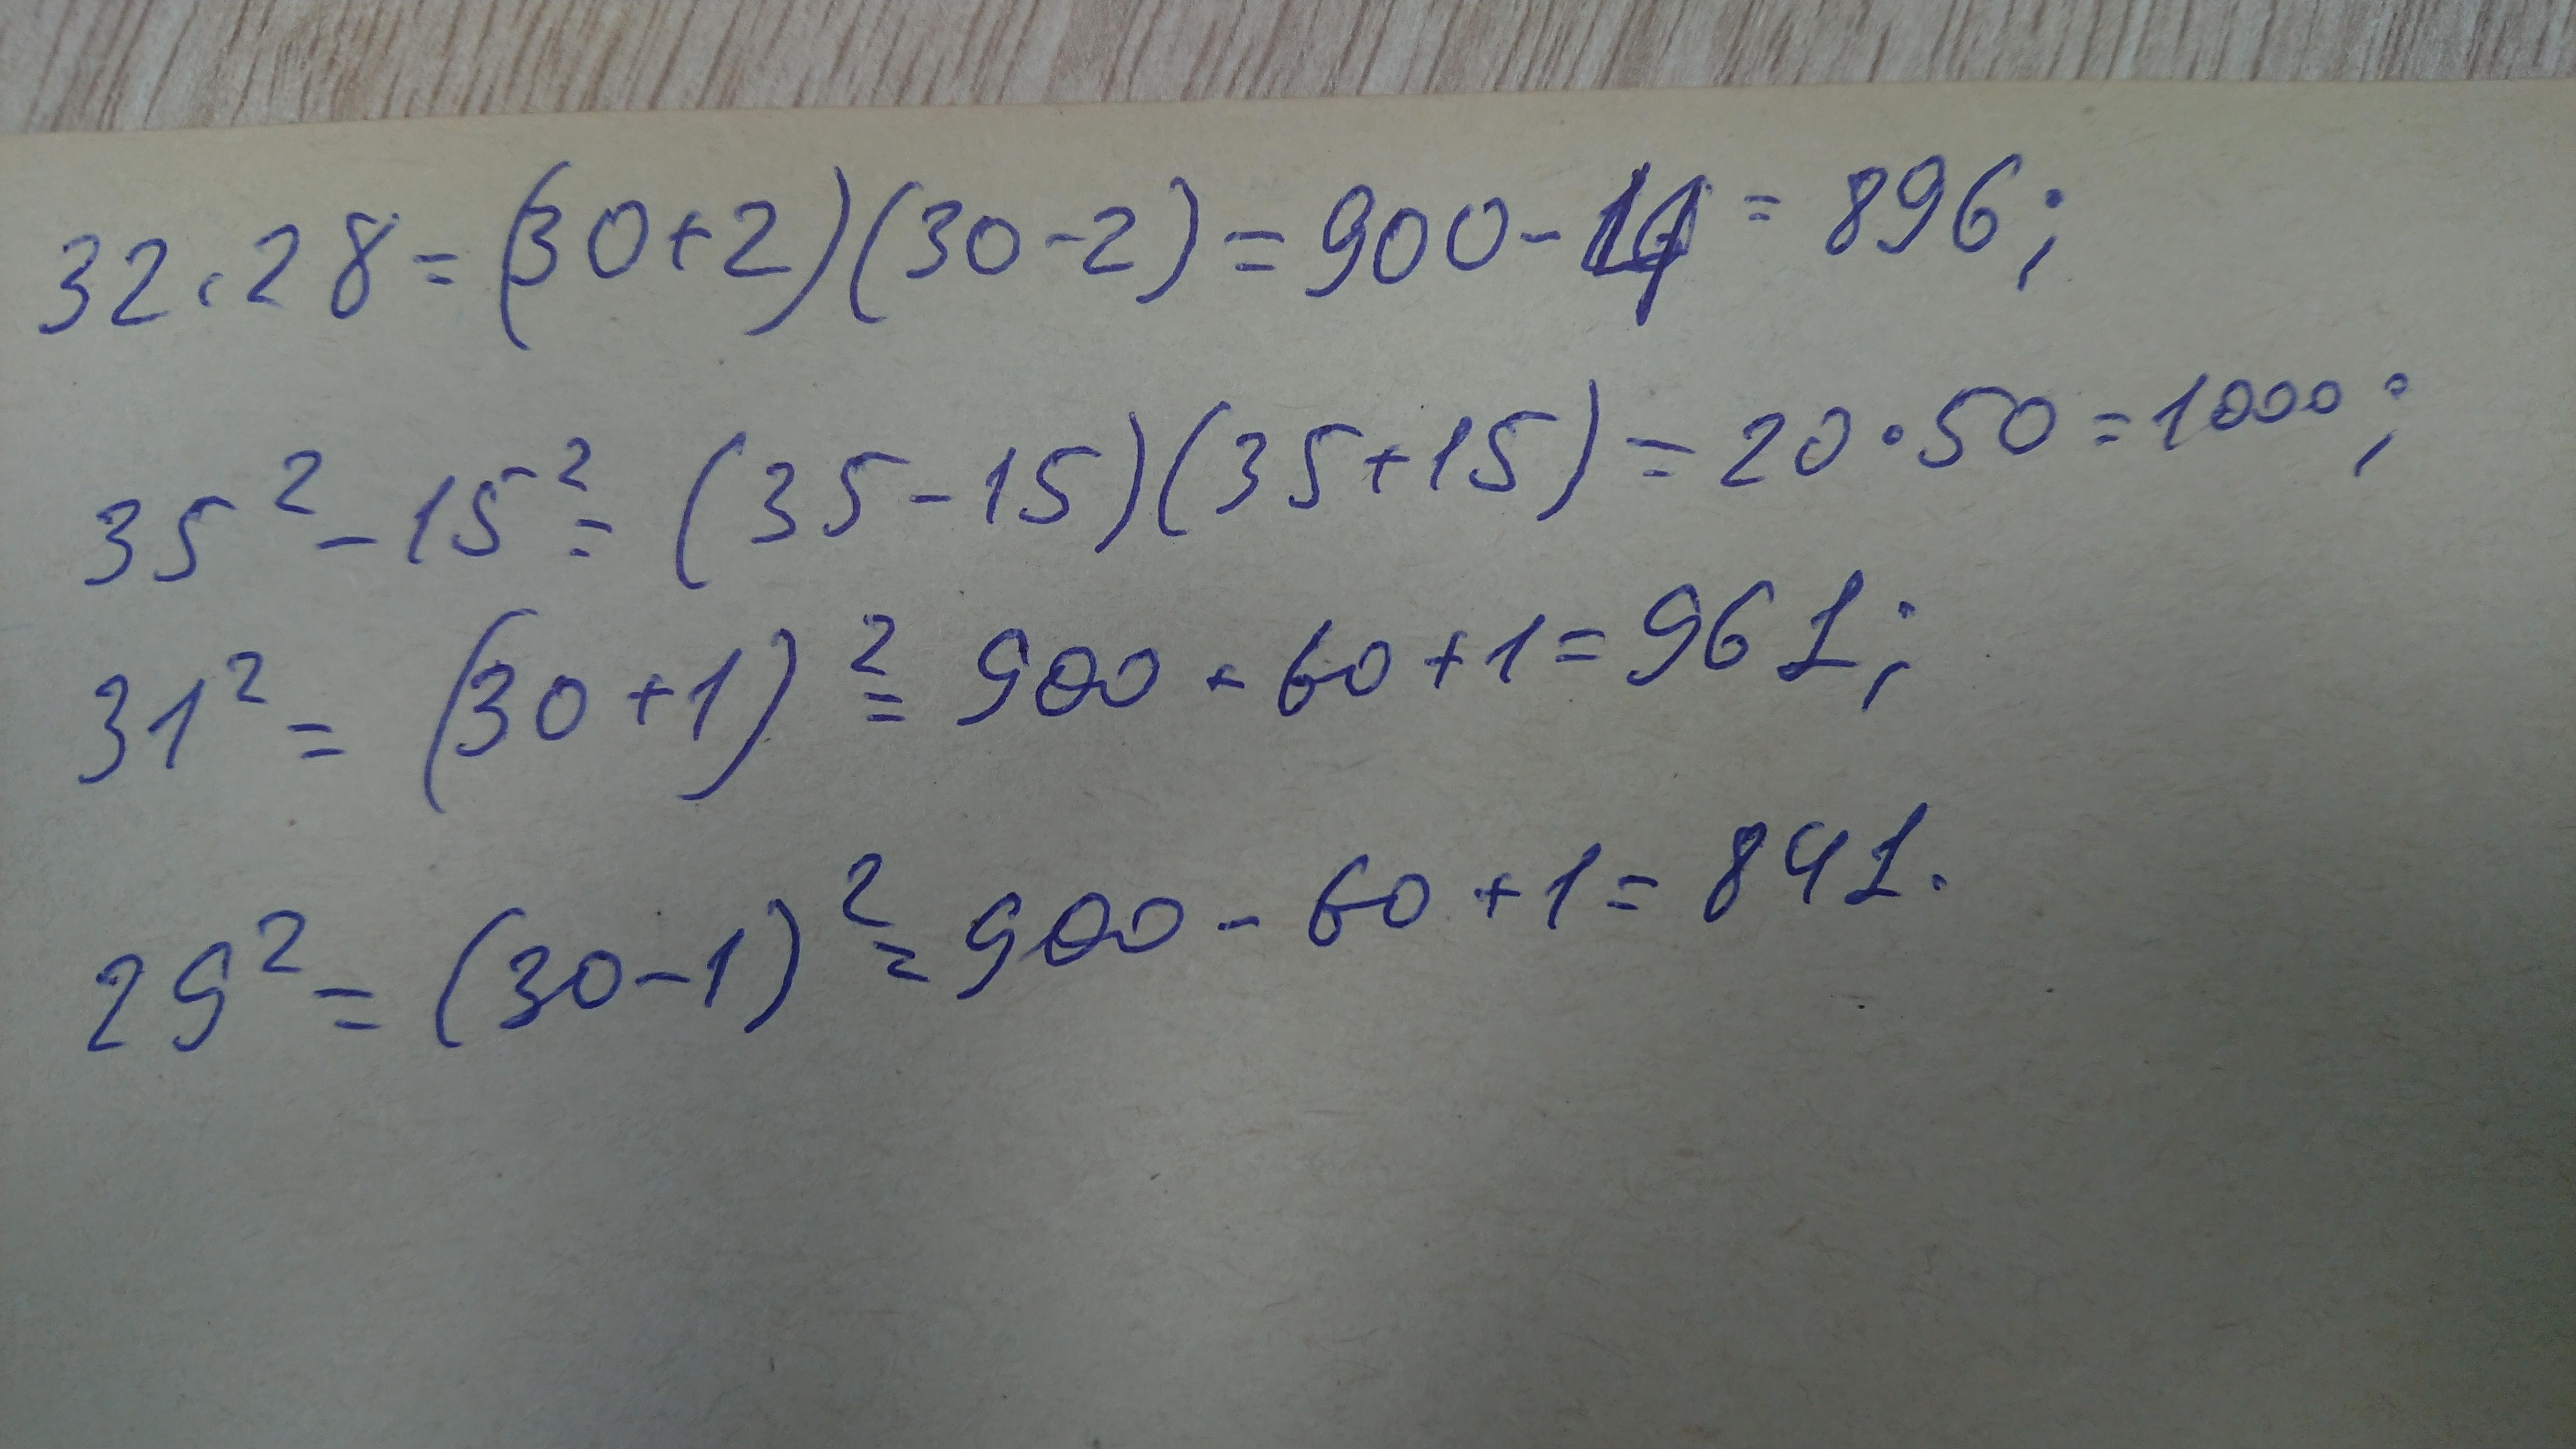 32·28=(30+2)(30-2)=900-4=896;
35²-15²=(35-15)(35+15)=20·50=1000;
31²=(30+1)²=900-60+1=961;
29²=(30-1)²=900-60+1=841.